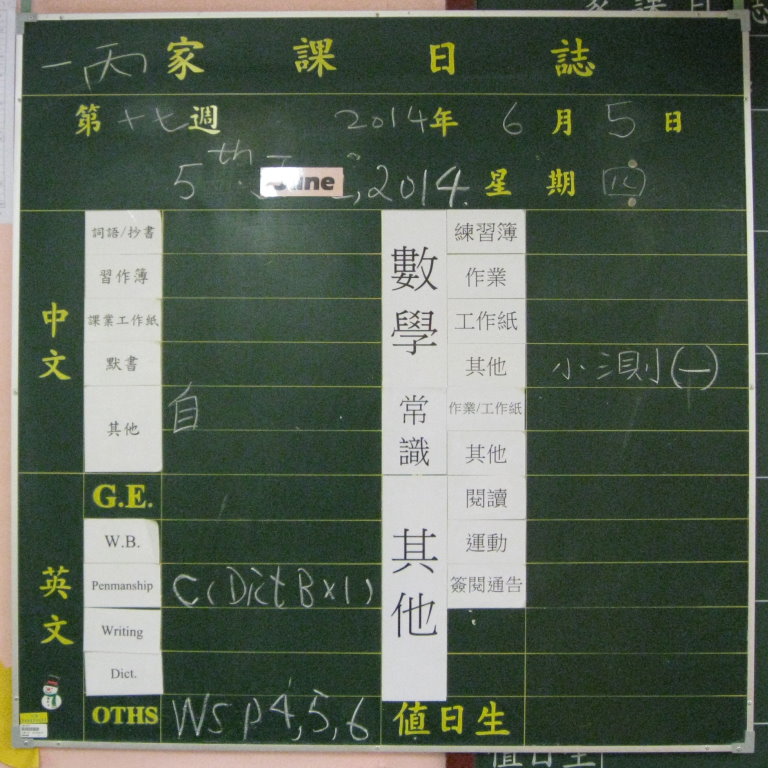 一丙家課日誌
第十七週 2014年 6月 5日
5th June, 2014. 星期四
中文
詞語/抄書
習作簿
課業工作紙
默書
其他 自
數學
練習簿
作業
工作紙
其他 小測(一)
常識
作業/工作紙
其他
英文
G.E.
W.B.
Penmanship C(Dict B×1)
Writing
Dict.
OTHS WS P4,5,6
其他
閱讀
運動
簽閱通告
值日生
值日生